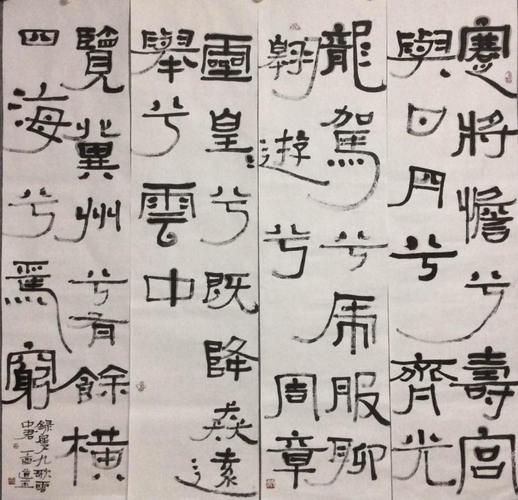 蹇將憺兮壽宮
與日月兮齊光
龍駕兮帝服聊
翱遊兮周章
靈皇兮既降猋遠
舉兮雲中
覽冀州兮有餘橫
四海兮焉窮
九歌雲
中君 丁酉